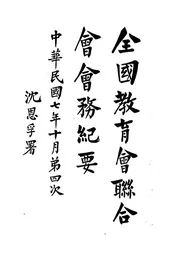 全國教育會聯合
會會務紀要
中華民國七年十月第四次
沈恩孚署